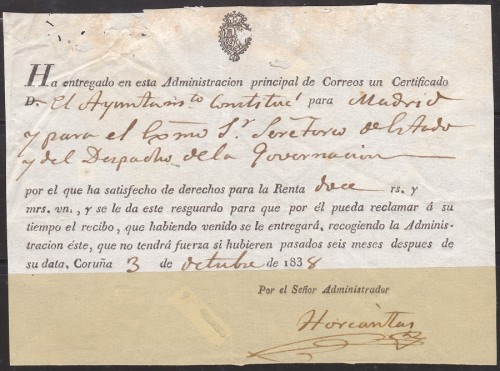 Ha entregado en esta Administracion principal de Correos un Certificado
D. El Ayuntami.to Constituc.l para Madrid
y para el Exmo S.r Secretario de Estado
y del Despacho de la Governacion
por el que ha satisfecho de derechos para la Renta doce rs. y
mrs. vn., y se le da este resguardo para que por él pueda reclamar á su
tiempo el recibo, que habiendo venido se le entregará, recogiendo la Adminis-
tracion éste, que no tendrá fuerza si hubieren pasados seis meses despues de
su data, Coruña 3 de Octubre de 1838
Por el Señor Administrador
Horcasitas